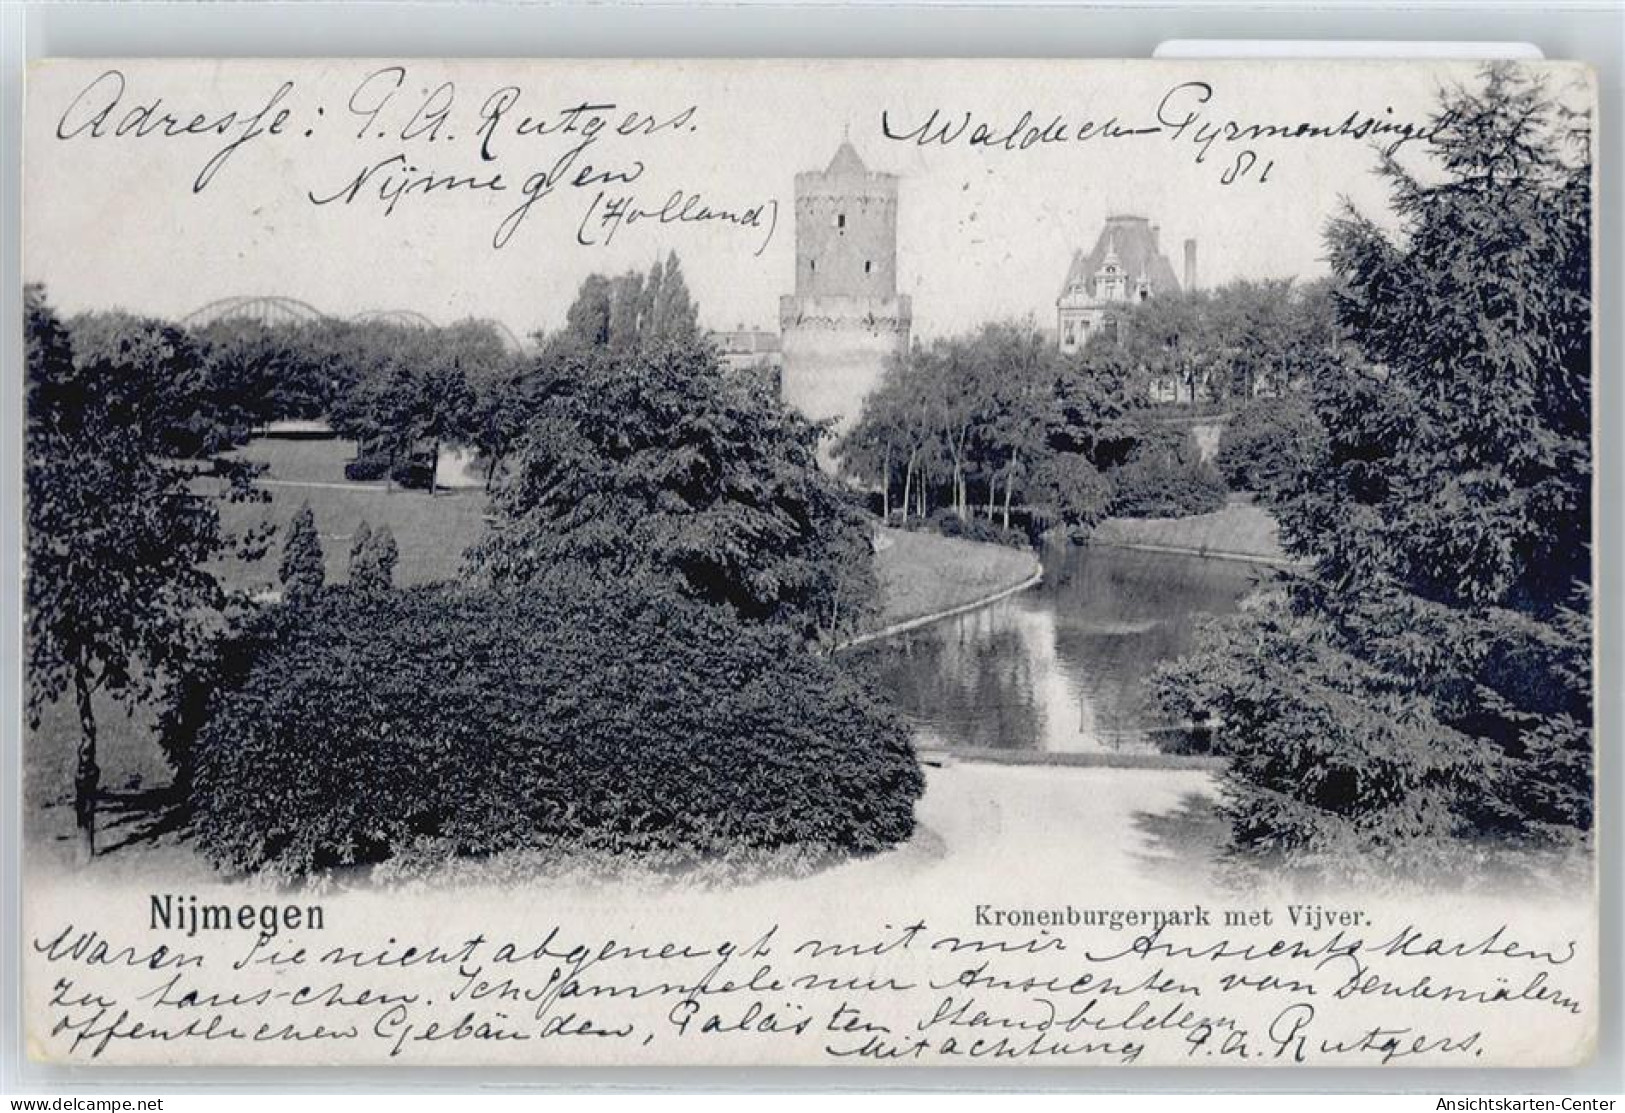 Adresse: P. A. Rutgers.
Nijmegen
(Holland)
Waldeck-Pyrmontsingel
81
Nijmegen
Kronenburgerpark met Vijver.
Waren Sie nicht abgeneigt mit mir Ansichtskarten
zu tauschen. Ich sammele nur Ansichten von Denkmälern
öffentlichen Gebäuden, Palästen Standbildern
Mit achtung P. A. Rutgers.
delcampe.net
Ansichtskarten-Center